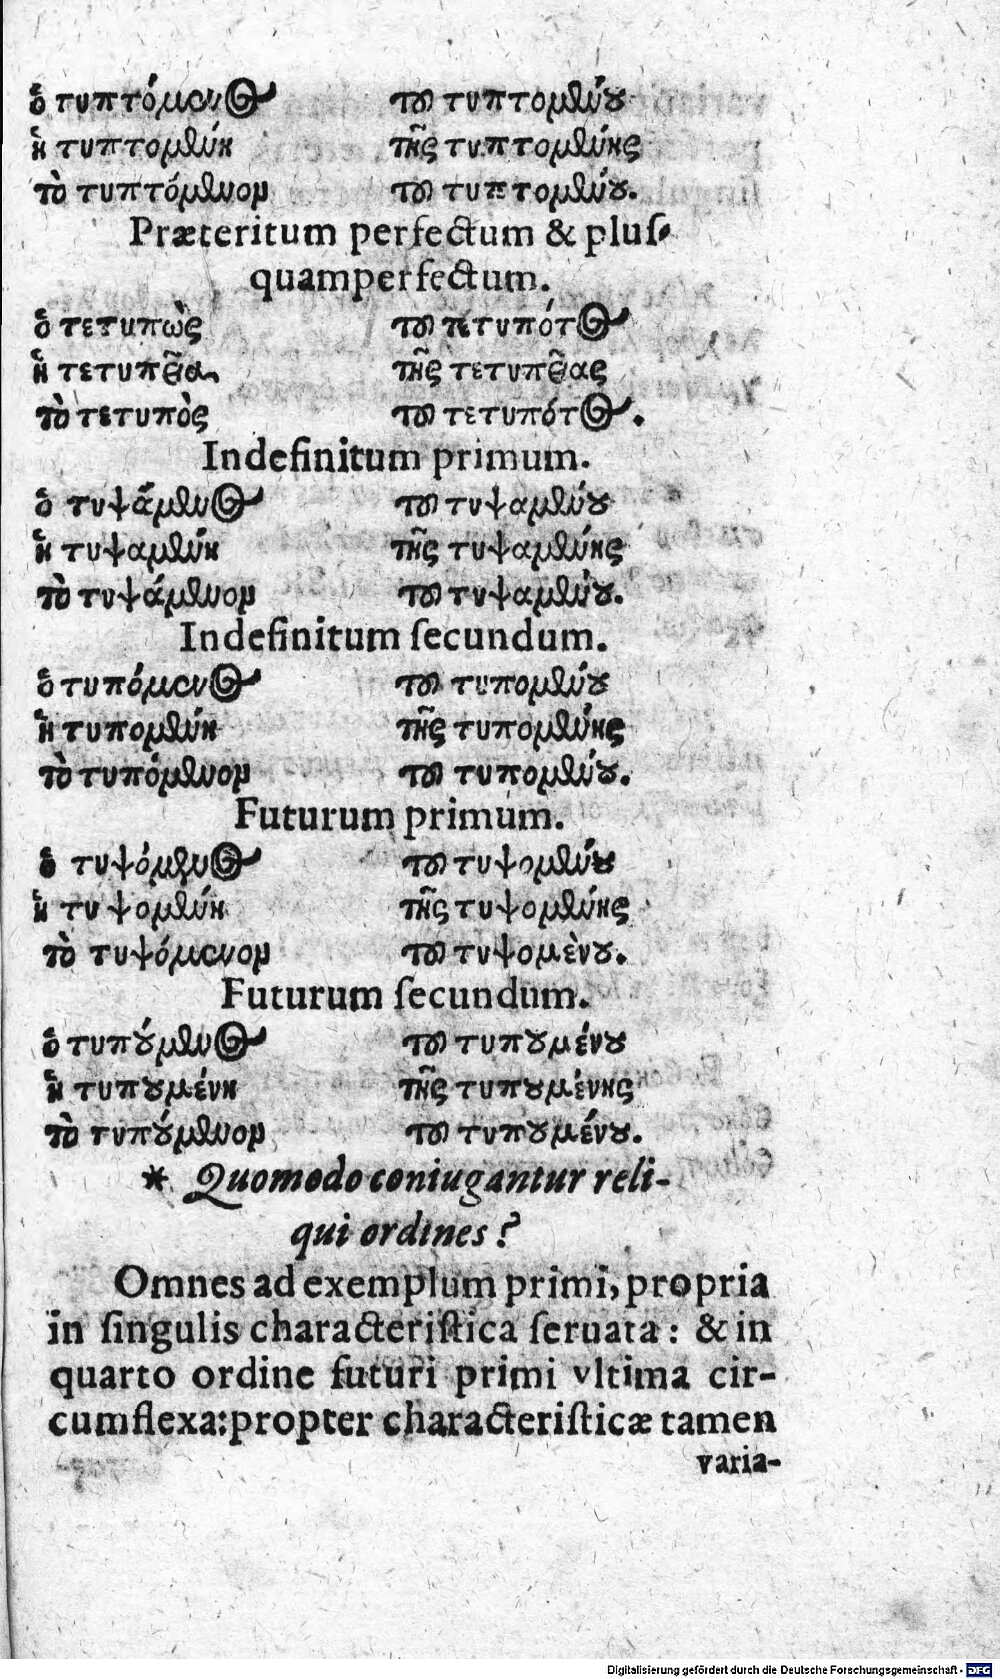 ὁ τυπτόμενος τοῦ τυπτομένου
ἡ τυπτομένη τῆς τυπτομένης
τὸ τυπτόμενον τοῦ τυπτομένου.
Præteritum perfectum & pluſ-
quamperfectum.
ὁ τετυπὼς τοῦ τετυπότος
ἡ τετυπῦα τῆς τετυπῦας
τὸ τετυπὸς τοῦ τετυπότος.
Indefinitum primum.
ὁ τυψάμενος τοῦ τυψαμένου
ἡ τυψαμένη τῆς τυψαμένης
τὸ τυψάμενον τοῦ τυψαμένου.
Indefinitum ſecundum.
ὁ τυπόμενος τοῦ τυπομένου
ἡ τυπομένη τῆς τυπομένης
τὸ τυπόμενον τοῦ τυπομένου.
Futurum primum.
ὁ τυψόμενος τοῦ τυψομένου
ἡ τυψομένη τῆς τυψομένης
τὸ τυψόμενον τοῦ τυψομὲνου.
Futurum ſecundum.
ὁ τυπούμενος τοῦ τυπουμένου
ἡ τυπουμένη τῆς τυπουμένης
τὸ τυπούμενον τοῦ τυπουμένου.
* Quomodo coniugantur reli-
qui ordines?
Omnes ad exemplum primi, propria
in ſingulis characteriſtica ſeruata: & in
quarto ordine futuri primi vltima cir-
cumflexa: propter characteriſticæ tamen
varia-
Digitalisierung gefördert durch die Deutsche Forschungsgemeinschaft - DFG